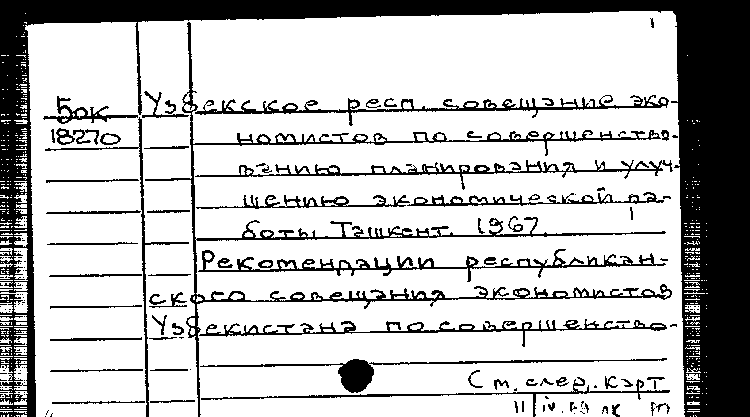 Бок Узбекское респ. совещание эко-
18270 номистов по совершенство-
ванию планирования и улуч-
шению экономической ра-
боты Ташкент. 1967.
Рекомендации республикан-
ского совещания экономистов
Узбекистана по совершенство-
См. след. карт